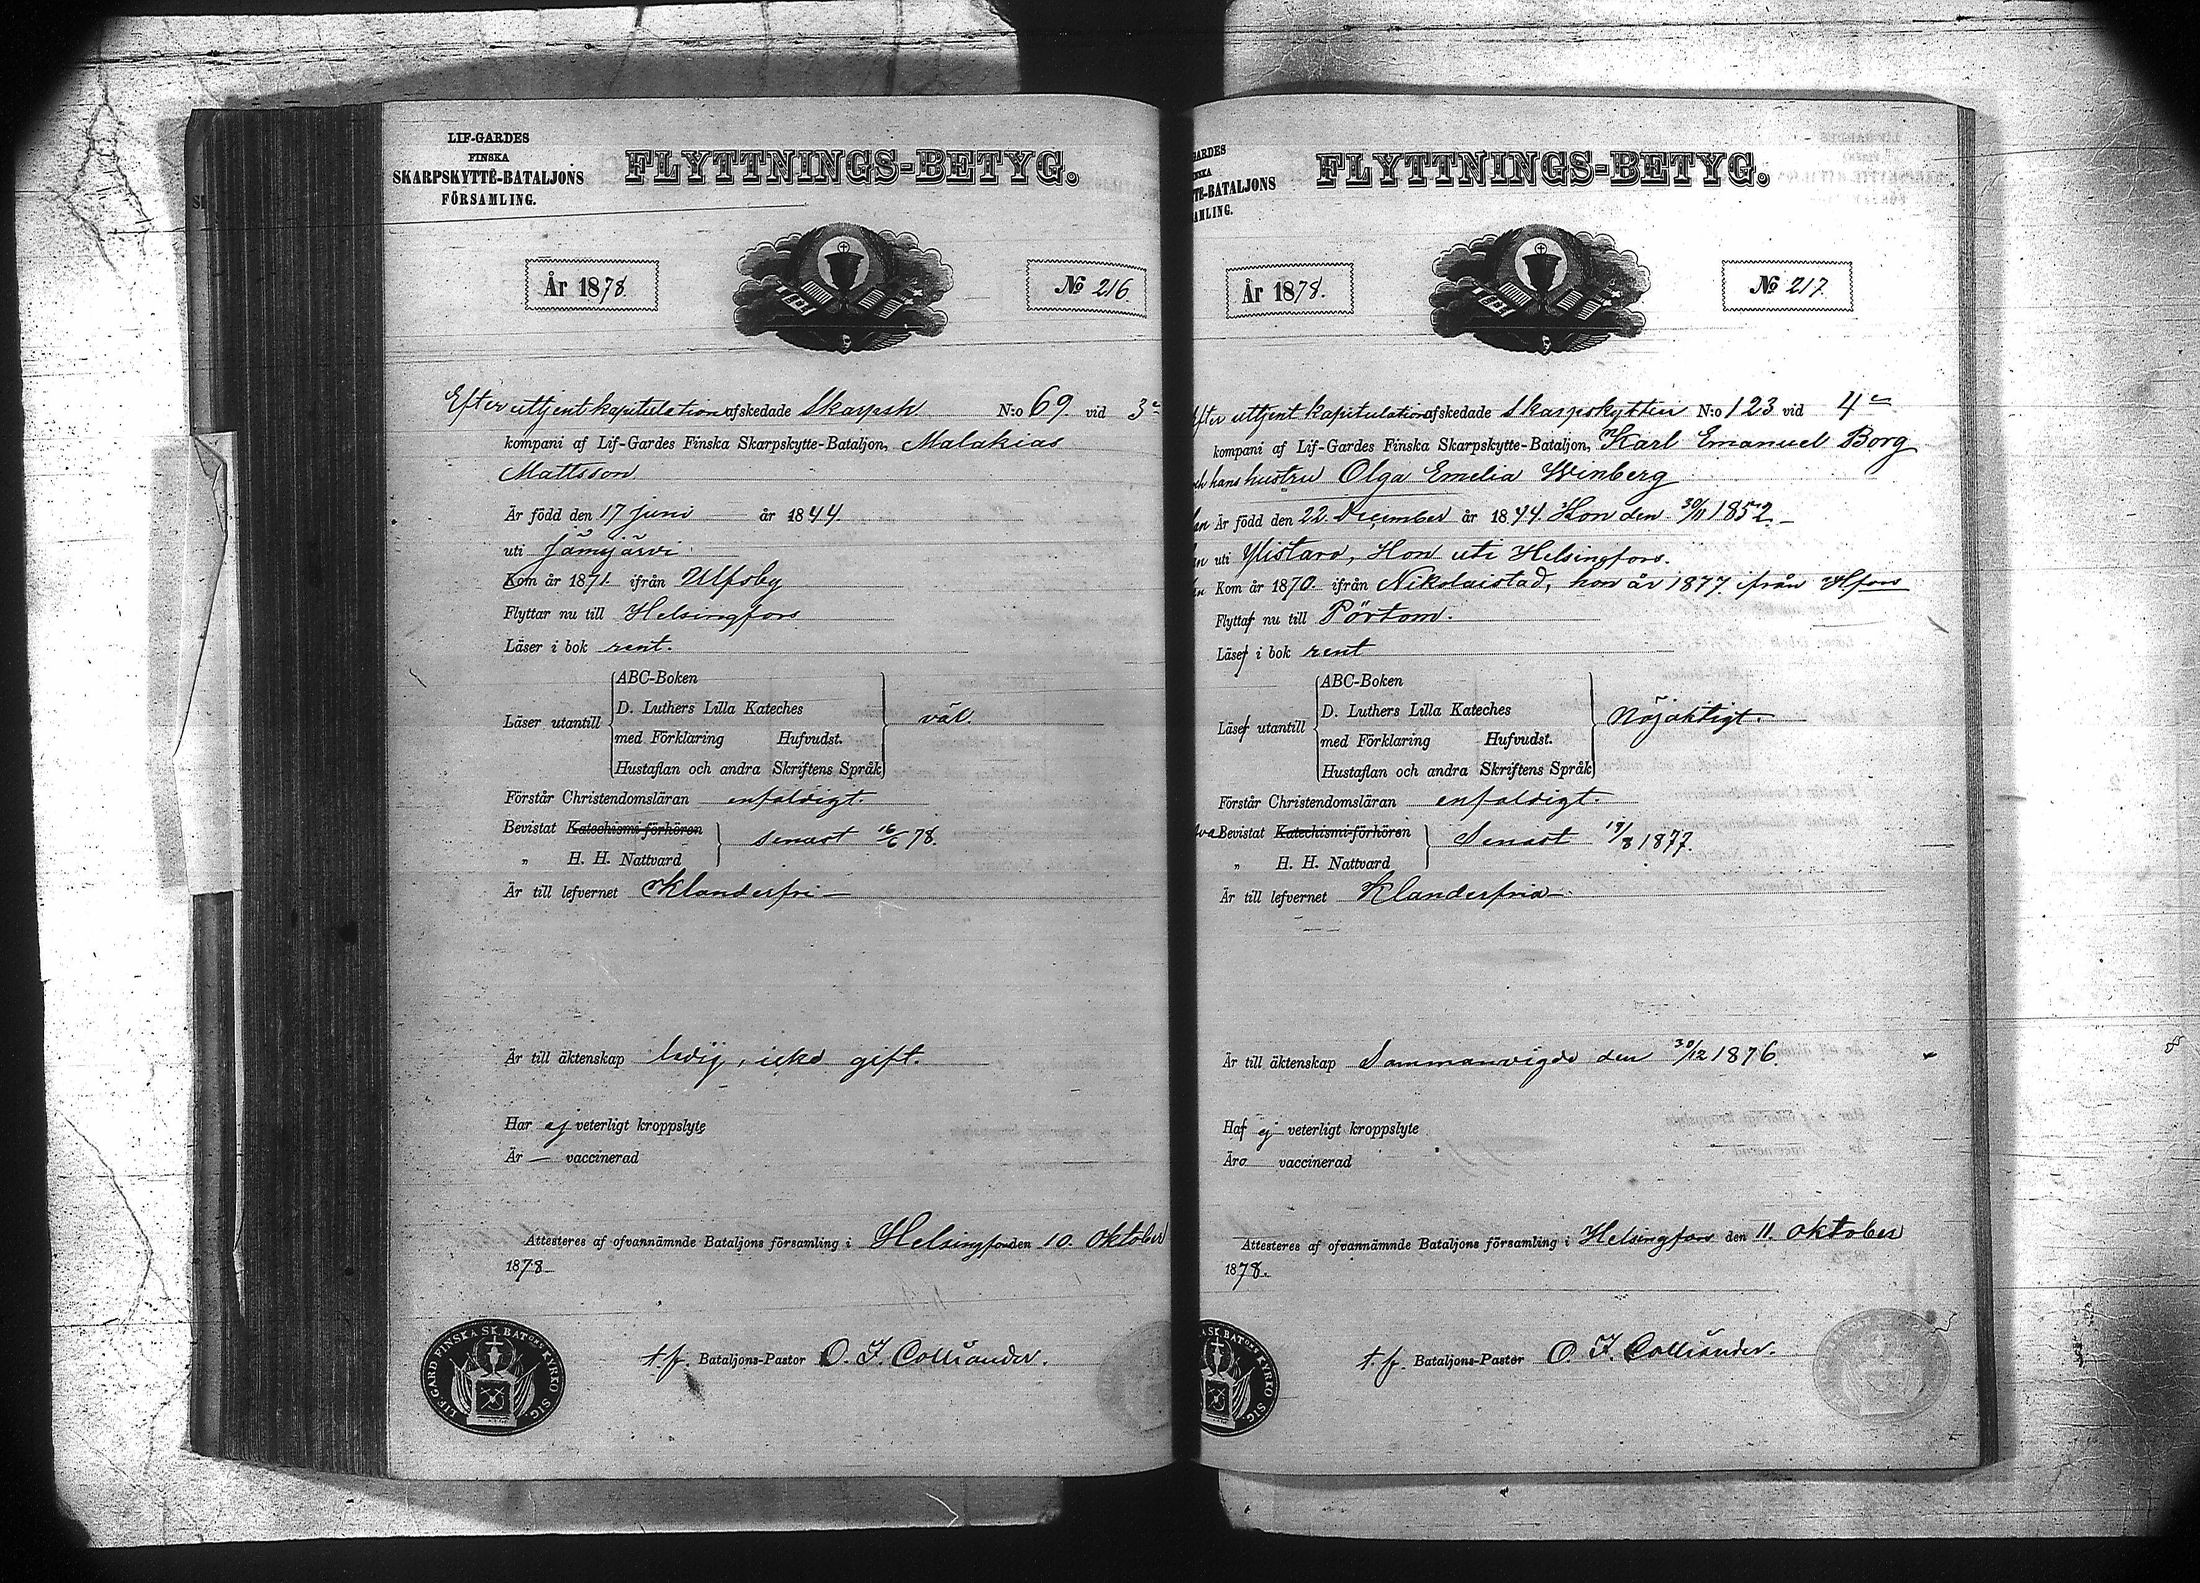 LIF-GARDES
FINSKA
SKARPSKYTTE-BATALJONS
FÖRSAMLING.
FLYTTNINGS-BETYG.
År 1878.
No 216.
Efter uttjent kapitulation afskedade Skarpsk N:o 69. vid 3e
kompani af Lif-Gardes Finska Skarpskytte-Bataljon, Malakias
Mattsson
Är född den 17 Juni år 1844.
uti Jämijärvi
Kom år 1871. ifrån Ulfsby
Flyttar nu till Helsingfors
Läser i bok rent.
Läser utantill
ABC-Boken
D. Luthers Lilla Kateches
med Förklaring Hufvudst.
Hustaflan och andra Skriftens Språk
väl.
Förstår Christendomsläran enfaldigt.
Bevistat Katechismi-förhören
„ H. H. Nattvard
senast 16/6 78.
Är till lefvernet oklanderfri
Är till äktenskap ledig, icke gift.
Har ej veterligt kroppslyte
Är — vaccinerad
Attesteres af ofvannämnde Bataljons församling i Helsingfors den 10. Oktober
1878
t. f. Bataljons-Pastor O. I. Colliander.
LIF. GARD FINSKA SK. BATONS KYRKO SIG.
GARDES
SKA
TE-BATALJONS
AMLING.
FLYTTNINGS-BETYG.
År 1878.
No 217.
fter uttjent kapitulation afskedade Skarpskytten N:o 123 vid 4e
kompani af Lif-Gardes Finska Skarpskytte-Bataljon, Karl Emanuel Borg
och hans hustru Olga Emelia Winberg
an Är född den 22. December år 1844. Hon den 30/11 1852.
n uti Ylistaro, Hon uti Helsingfors.
n Kom år 1870 ifrån Nikolaistad, hon år 1877 ifrån H.fors
Flytta nu till Pörtom.
Läsa i bok rent
Läsa utantill
ABC-Boken
D. Luthers Lilla Kateches
med Förklaring Hufvudst.
Hustaflan och andra Skriftens Språk
Nöjaktigt.
Förstår Christendomsläran enfaldigt.
Bevistat Katechismi-förhören
„ H. H. Nattvard
Senast 19/8 1877.
Är till lefvernet Klanderfria
Är till äktenskap Sammanvigde den 30/12 1876.
Haf ej veterligt kroppslyte
Äro vaccinerad
Attesteres af ofvannämnde Bataljons församling i Helsingfors den 11. Oktober
1878.
t. f. Bataljons-Pastor O. I. Colliander.
KA SK. BATONS KYRKO SIG.